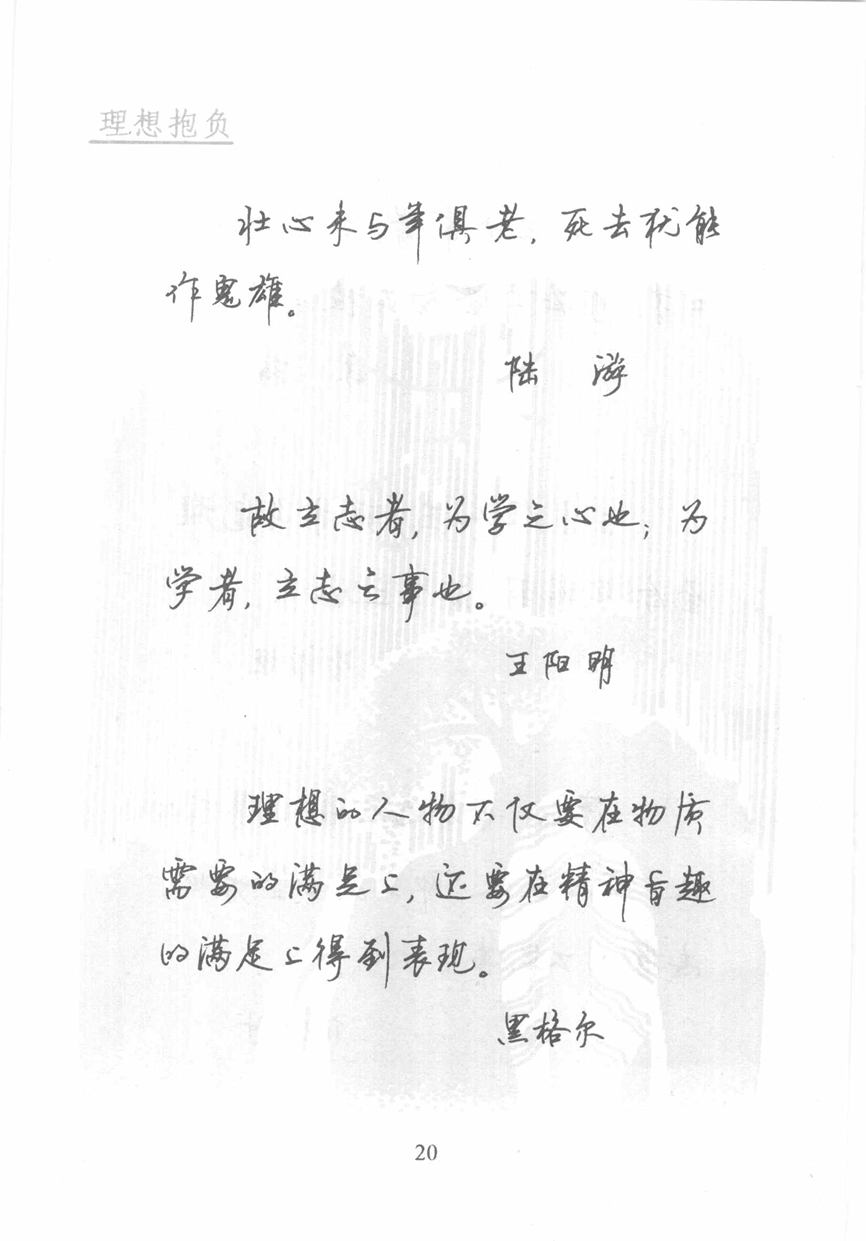 理想抱负
壮心未与年俱老，死去犹能
作鬼雄。
陆 游
故立志者，为学之心也；为
学者，立志之事也。
王阳明
理想的人物不仅要在物质
需要的满足上，还要在精神旨趣
的满足上得到表现。
黑格尔
20